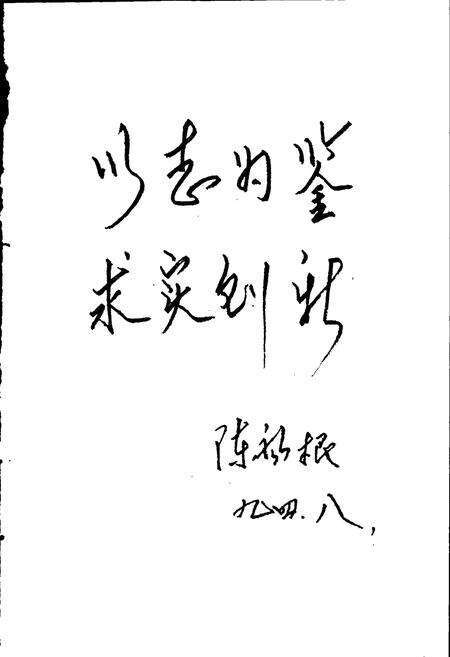 以志为鉴
求实创新
陈根
九四.八,